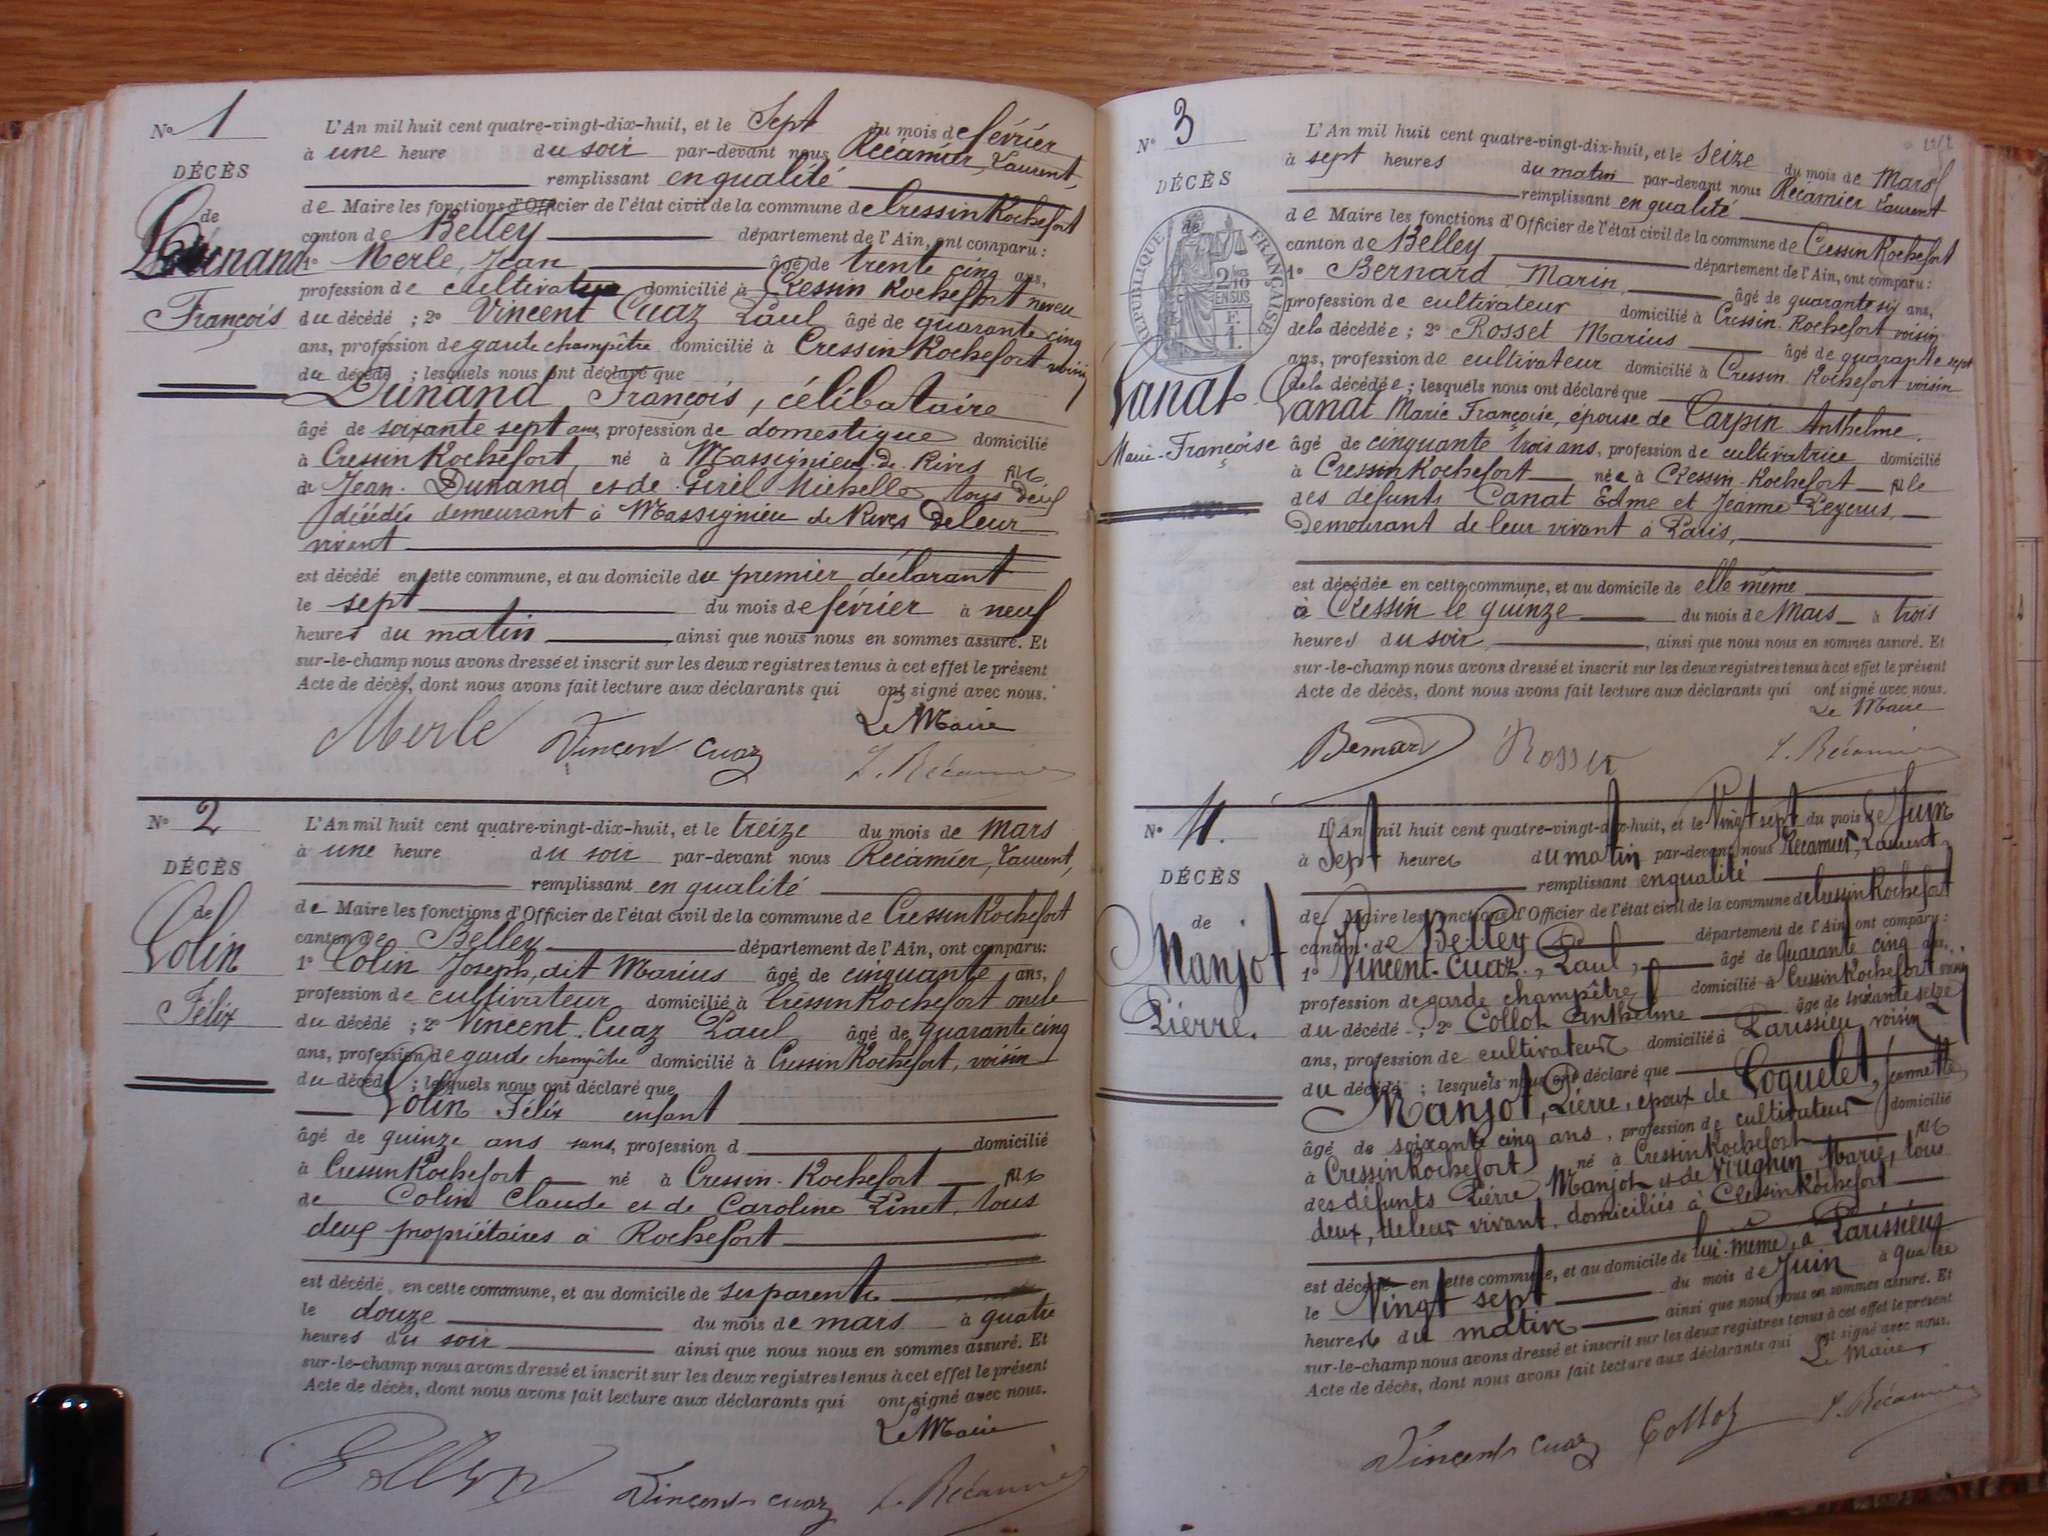 No 1
DÉCÈS
de
Dunand
François
L'An mil huit cent quatre-vingt-dix-huit, et le Sept du mois de février
à une heure du soir par-devant nous Récamier, Laurent,
remplissant en qualité
de Maire les fonctions d'Officier de l'état civil de la commune de Cressin Rochefort
canton de Belley département de l'Ain, ont comparu :
1o Merle, Jean âgé de trente cinq ans,
profession de cultivateur domicilié à Cressin Rochefort neveu
du décédé ; 2o Vincent Cuaz Paul âgé de quarante cinq
ans, profession de garde champêtre domicilié à Cressin Rochefort voisin
du décédé ; lesquels nous ont déclaré que
Dunand François, célibataire
âgé de soixante sept ans, profession de domestique domicilié
à Cressin Rochefort né à Massignieu de Rives fils
de Jean Dunand et de Girel Michelle tous deux
décédés demeurant à Massignieu de Rives de leur
vivant
est décédé en cette commune, et au domicile du premier déclarant
le sept du mois de février à neuf
heures du matin, ainsi que nous nous en sommes assuré. Et
sur-le-champ nous avons dressé et inscrit sur les deux registres tenus à cet effet le présent
Acte de décès, dont nous avons fait lecture aux déclarants qui ont signé avec nous.
Le Maire
Merle Vincent Cuaz L. Récamier
No 2
DÉCÈS
de
Colin
Félix
L'An mil huit cent quatre-vingt-dix-huit, et le treize du mois de mars
à une heure du soir par-devant nous Récamier, Laurent,
remplissant en qualité
de Maire les fonctions d'Officier de l'état civil de la commune de Cressin Rochefort
canton de Belley département de l'Ain, ont comparu:
1o Colin Joseph, dit Marius âgé de cinquante ans,
profession de cultivateur domicilié à Cressin Rochefort oncle
du décédé ; 2o Vincent Cuaz Paul âgé de quarante cinq
ans, profession de garde champêtre domicilié à Cressin Rochefort, voisin
du décédé ; lesquels nous ont déclaré que
Colin Félix enfant
âgé de quinze ans sans, profession d domicilié
à Cressin Rochefort né à Cressin-Rochefort fils
de Colin Claude et de Caroline Pinet, tous
deux propriétaires à Rochefort
est décédé en cette commune, et au domicile de ses parents
le douze du mois de mars à quatre
heures du soir ainsi que nous nous en sommes assuré. Et
sur-le-champ nous avons dressé et inscrit sur les deux registres tenus à cet effet le présent
Acte de décès, dont nous avons fait lecture aux déclarants qui ont signé avec nous.
Le Maire
Vincent Cuaz L. Récamier
No 3
DÉCÈS
de
RÉPUBLIQUE FRANÇAISE
2/10 EN SUS
Canat
Marie-Françoise
L'An mil huit cent quatre-vingt-dix-huit, et le seize du mois de Mars
à sept heures du matin par-devant nous Récamier Laurent
remplissant en qualité
de Maire les fonctions d'Officier de l'état civil de la commune de Cressin Rochefort
canton de Belley département de l'Ain, ont comparu :
1o Bernard Marin, âgé de quarante six ans,
profession de cultivateur domicilié à Cressin-Rochefort voisin
de la décédée ; 2o Rosset Marius âgé de quarante sept
ans, profession de cultivateur domicilié à Cressin Rochefort voisin
de la décédée ; lesquels nous ont déclaré que
Canat Marie Françoise, épouse de Carpin Anthelme,
âgé de cinquante trois ans, profession de cultivatrice domicilié
à Cressin Rochefort née à Cressin-Rochefort fille
des défunts Canat Edme et Jeanne
demeurant de leur vivant à Paris,
est décédée en cette commune, et au domicile de elle même
à Cressin le quinze du mois de Mars à trois
heures du soir, ainsi que nous nous en sommes assuré. Et
sur-le-champ nous avons dressé et inscrit sur les deux registres tenus à cet effet le présent
Acte de décès, dont nous avons fait lecture aux déclarants qui ont signé avec nous.
Le Maire
Bernard Rosset L. Récamier
No 4.
DÉCÈS
de
Manjot
Pierre.
L'An mil huit cent quatre-vingt-dix-huit, et le Vingt sept du mois de Juin
à Sept heures du matin par-devant nous Récamier, Laurent,
remplissant en qualité
de Maire les fonctions d'Officier de l'état civil de la commune de Cressin Rochefort
canton de Belley département de l'Ain, ont comparu :
1o Vincent-Cuaz, Paul, âgé de quarante cinq ans,
profession de garde champêtre domicilié à Cressin Rochefort voisin
du décédé ; 2o Collot Anthelme âgé de soixante seize
ans, profession de cultivateur domicilié à Parissieu voisin
du décédé ; lesquels nous ont déclaré que
Manjot, Pierre, époux de Coquelet, Jeannette
âgé de soixante cinq ans, profession de cultivateur domicilié
à Cressin Rochefort né à Cressin Rochefort fils
des défunts Pierre Manjot et de Marie, tous
deux, de leur vivant domiciliés à Cressin Rochefort
est décédé en cette commune, et au domicile de lui-même, à Parissieu
le Vingt sept du mois de Juin à quatre
heures du matin ainsi que nous nous en sommes assuré. Et
sur-le-champ nous avons dressé et inscrit sur les deux registres tenus à cet effet le présent
Acte de décès, dont nous avons fait lecture aux déclarants qui ont signé avec nous.
Le Maire,
Vincent Cuaz Collot L. Récamier